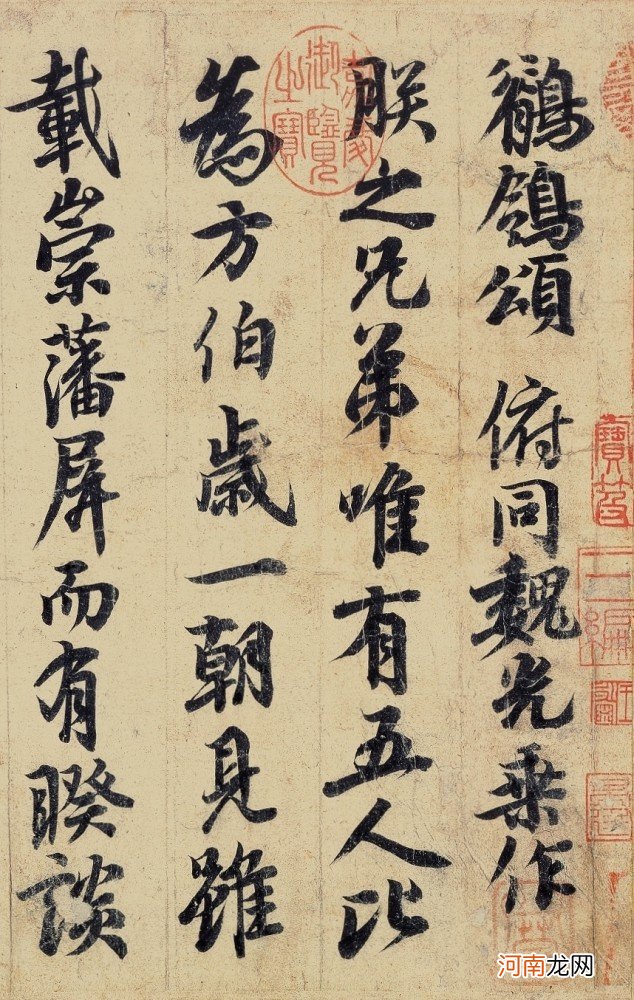 鶺鴒頌 俯同魏光乘作
朕之兄弟唯有五人比
為方伯歲一朝見雖
載崇藩屏而有睽談
嘉慶御覽之寶
寶笈
三編
河南龙网